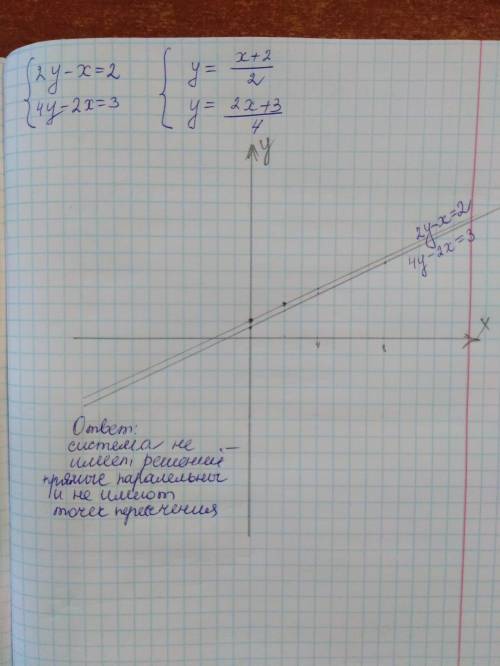 {2y-x=2
{4y-2x=3
{y= x+2/2
{y= 2x+3/4
y
2y-x=2
4y-2x=3
x
Ответ:
система не
имеет решений —
прямые паралельны
и не имеют
точек пересечения